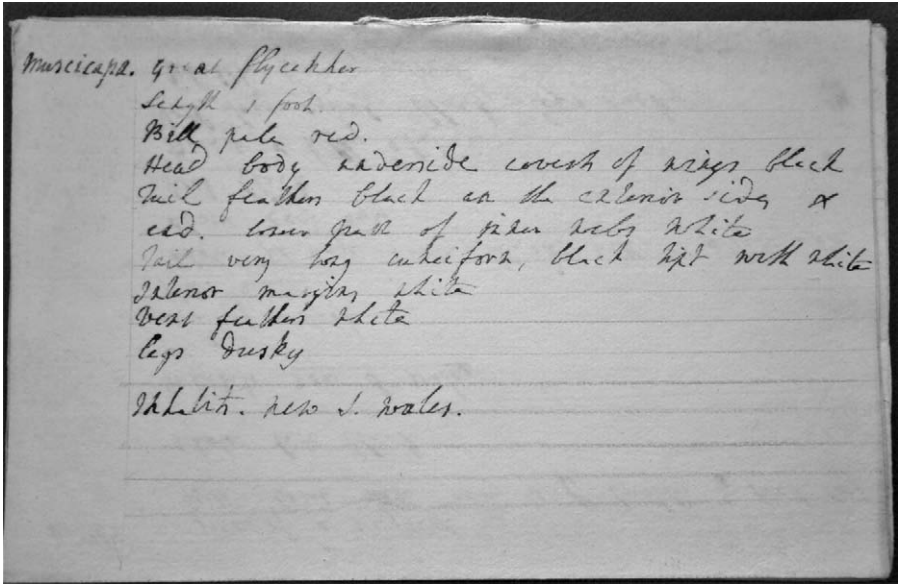 Muscicapa. great flycatcher
Length 1 foot
Bill pale red.
Head body underside coverts of wings black
Tail feathers black on the exterior sides &
end. lower part of inner webs white
Tail very long cuneiform, black tipt with white
Interior margins white
Vent feathers white
legs dusky
Inhabits. new S. wales.